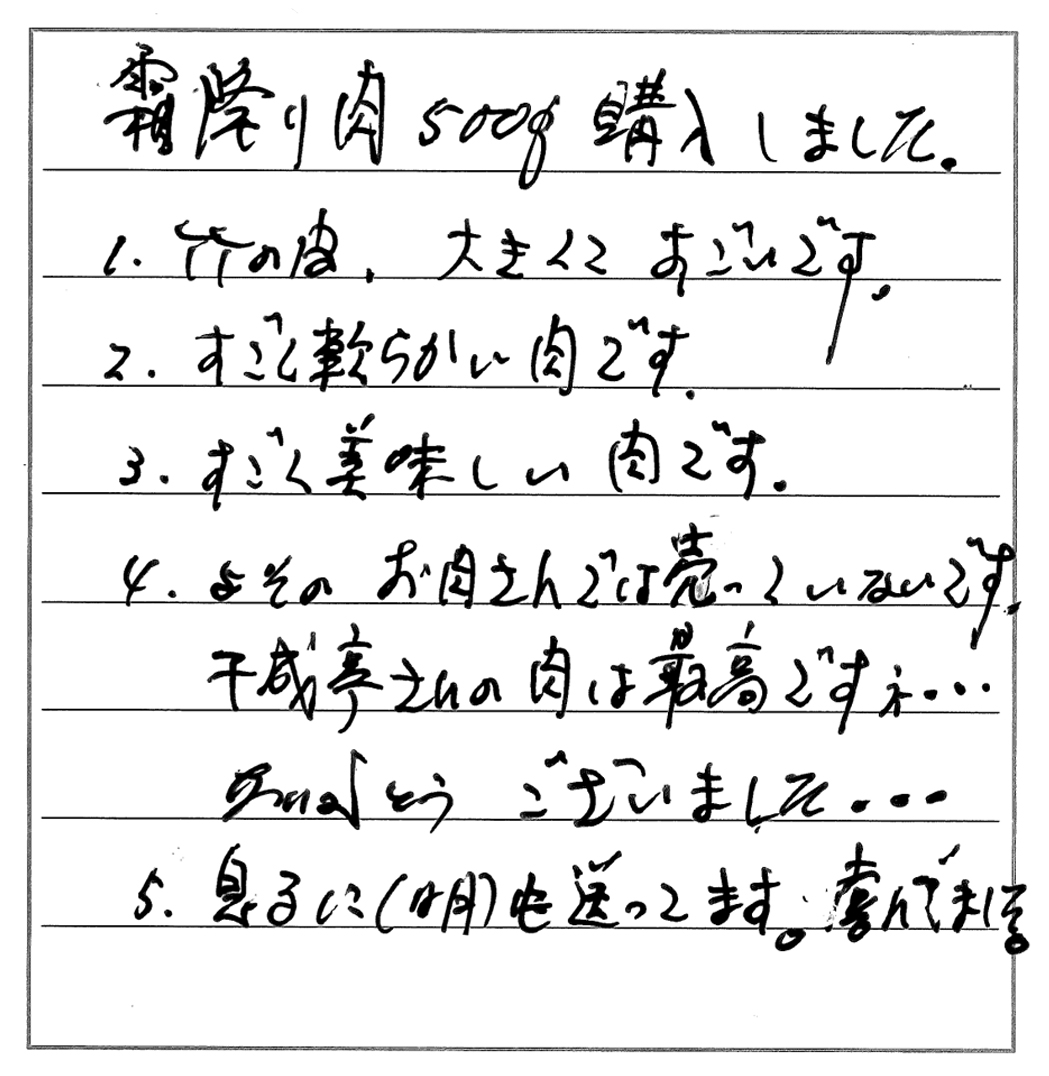 霜降り肉500g購入しました。
1. 竹の皮、大きくてすごいです。
2. すごく軟らかい肉です。
3. すごく美味しい肉です。
4. よその お肉さんでは売っていないです。
千成亭さんの肉は最高ですネ・・・
ありがとう ございました・・・
5. 息子に(四月)も送ってます。喜んでます。